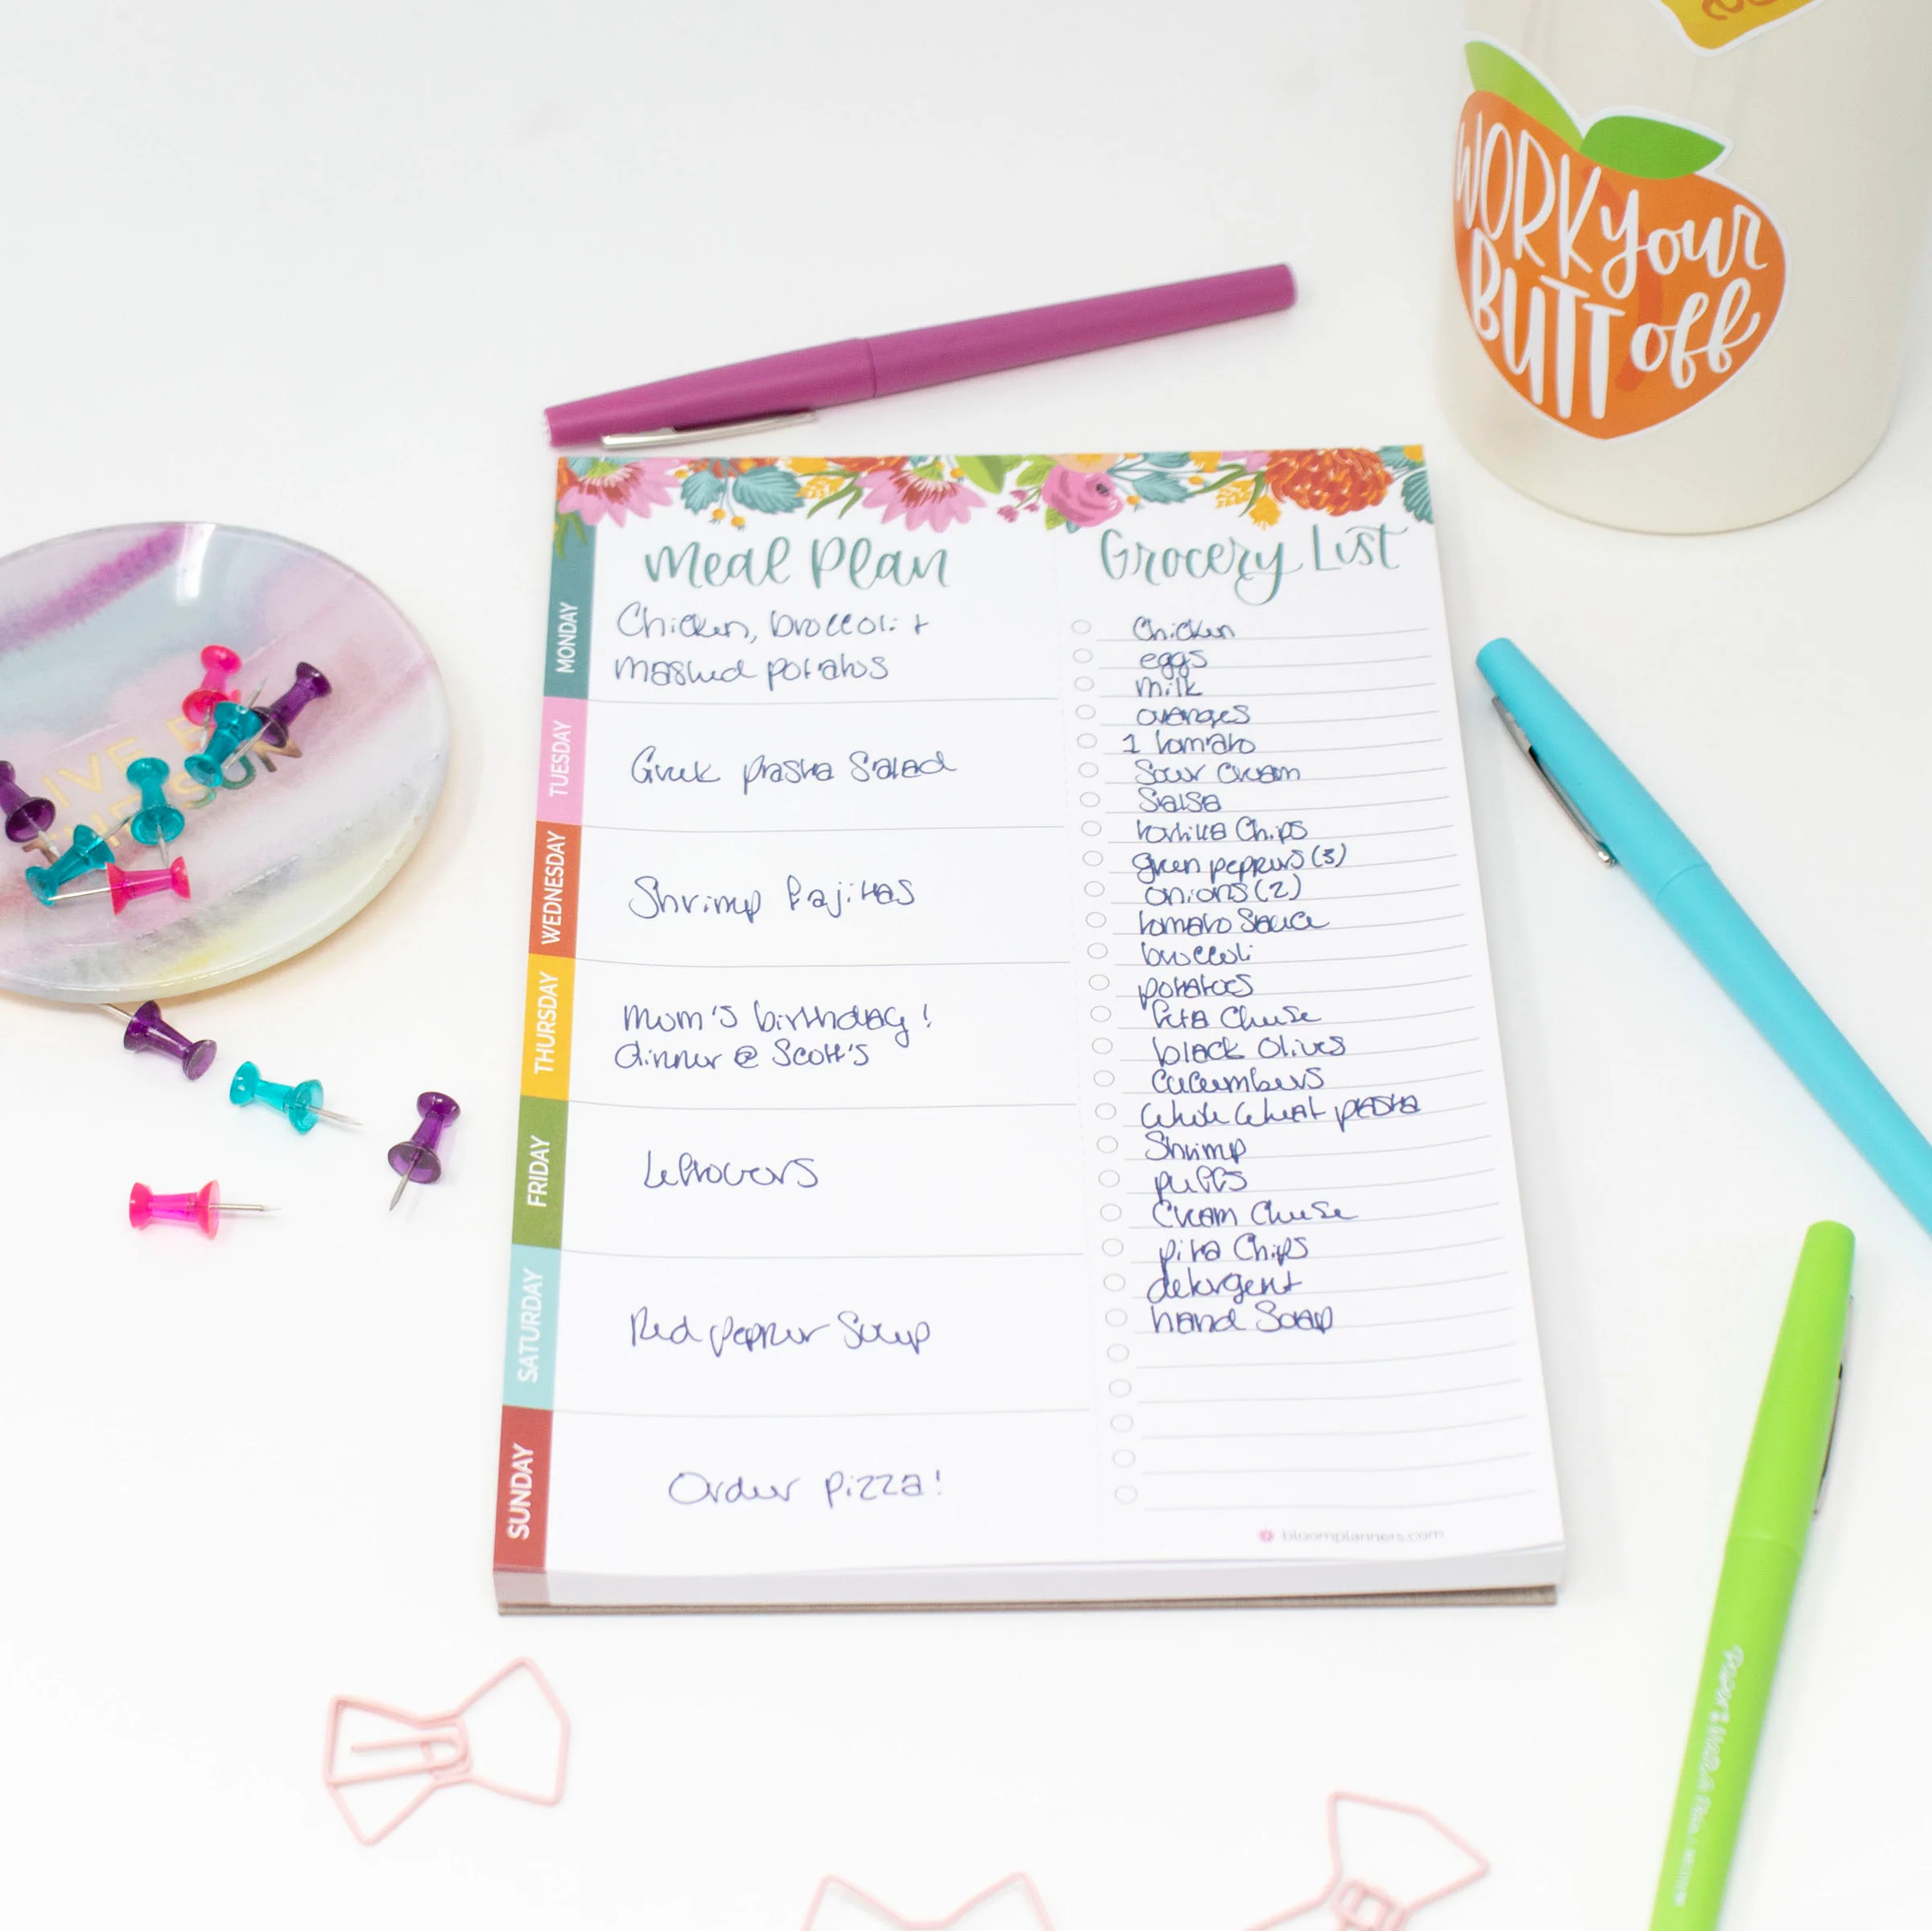 WORK your
BUTT off
Meal Plan
MONDAY
Chicken, broccoli +
mashed potatoes
TUESDAY
Greek pasta Salad
WEDNESDAY
Shrimp fajitas
THURSDAY
Mom's birthday!
dinner @ Scott's
FRIDAY
Leftovers
SATURDAY
Red pepper Soup
SUNDAY
Order pizza!
Grocery List
Chicken
eggs
milk
oranges
1 tomato
Sour Cream
Salsa
tortilla Chips
green peppers (3)
onions (2)
tomato Sauce
broccoli
potatoes
feta Cheese
black Olives
Cucumbers
Whole Wheat pasta
Shrimp
puffs
Cream Cheese
pita Chips
detergent
hand Soap
bloomplanners.com
LIVE
THE SUN